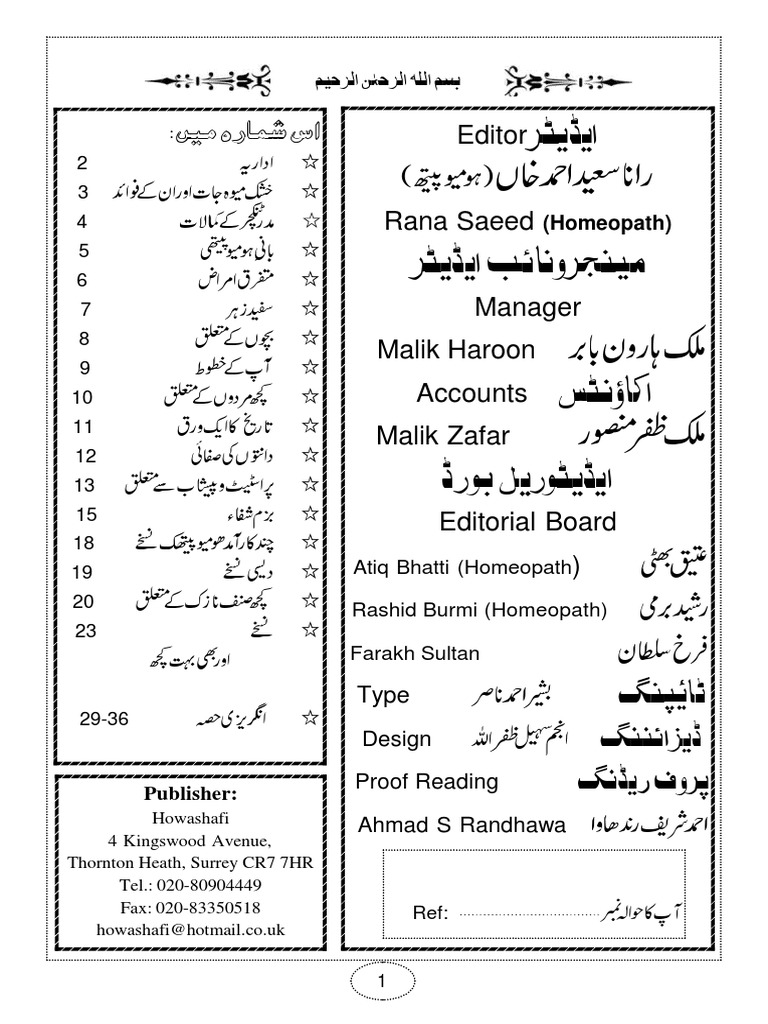 بسم الله الرحمٰن الرحیم
ایڈیٹر Editor
رانا سعید احمد خاں (ہومیوپیتھ)
Rana Saeed (Homeopath)
مینجر و نائب ایڈیٹر
Manager
Malik Haroon ملک ہارون بابر
Accounts اکاؤنٹس
Malik Zafar ملک ظفر منصور
ایڈیٹوریل بورڈ
Editorial Board
Atiq Bhatti (Homeopath) عتیق بھٹی
Rashid Burmi (Homeopath) رشید برمی
Farakh Sultan فرخ سلطان
ٹائپنگ بشیر احمد ناصر Type
ڈیزائننگ انجم سہیل ظفر اللہ Design
Proof Reading پروف ریڈنگ
Ahmad S Randhawa احمد شریف رندھاوا
Ref: ................................... آپ کا حوالہ نمبر
اس شمارہ میں:
☆ اداریہ 2
☆ خشک میوہ جات اور ان کے فوائد 3
☆ مدر ٹنکچر کے کمالات 4
☆ بانی ہومیوپیتھی 5
☆ متفرق امراض 6
☆ سفید زہر 7
☆ بچوں کے متعلق 8
☆ آپ کے خطوط 9
☆ کچھ مردوں کے متعلق 10
☆ تاریخ کا ایک ورق 11
☆ دانتوں کی صفائی 12
☆ پراسٹیٹ و پیشاب سے متعلق 13
☆ بزم شفاء 15
☆ چند کارآمد ھومیوپیتھک نسخے 18
☆ دیسی نسخے 19
☆ کچھ صنف نازک کے متعلق 20
☆ نسخے 23
اور بھی بہت کچھ
☆ انگریزی حصہ 29-36
Publisher:
Howashafi
4 Kingswood Avenue,
Thornton Heath, Surrey CR7 7HR
Tel.: 020-80904449
Fax: 020-83350518
howashafi@hotmail.co.uk
1